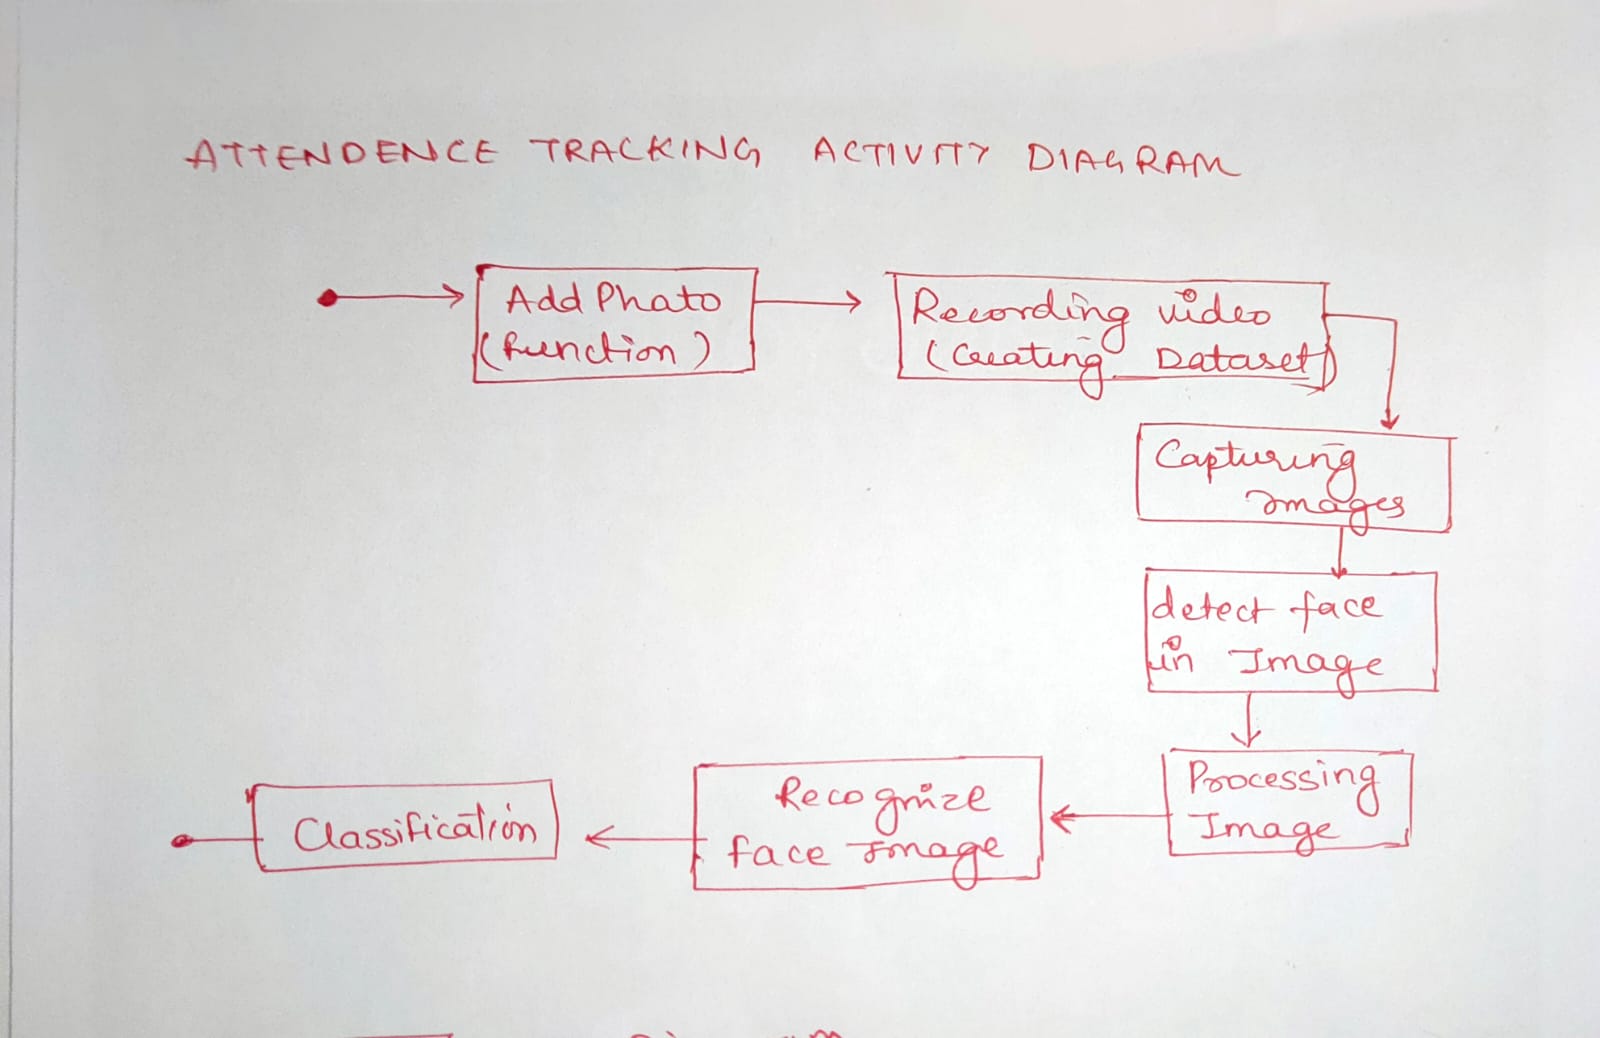 ATTENDENCE TRACKING ACTIVITY DIAGRAM
Add Phato
(function)
Recording video
(Creating Dataset)
Capturing
Images
detect face
in Image
Processing
Image
Recognize
face Image
Classification